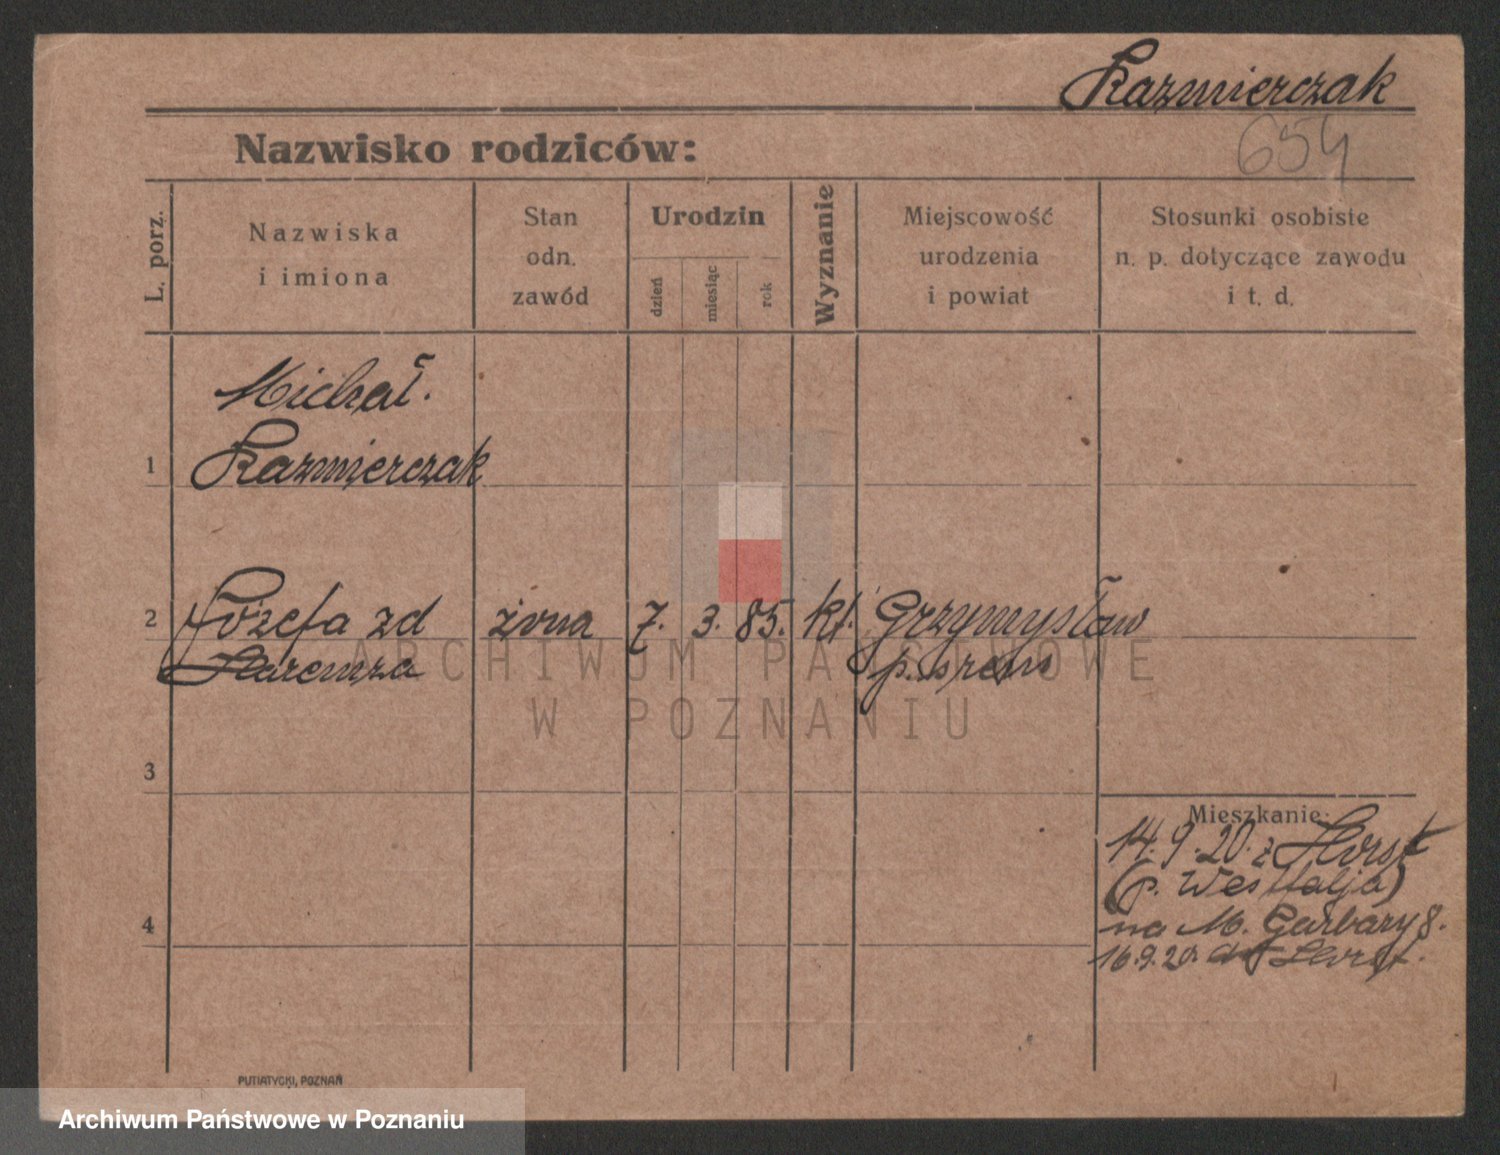 Kazmierczak
654
Nazwisko rodziców:
L. porz.
Nazwiska
i imiona
Stan
odn.
zawód
Urodzin
dzień
miesiąc
rok
Wyznanie
Miejscowość
urodzenia
i powiat
Stosunki osobiste
n. p. dotyczące zawodu
i t. d.
Michał.
1 Kazmierczak
2 Józefa zd żona 7. 3. 85. kt. Grzymysław
p. srem
ARCHIWUM PAŃSTWOWE
W POZNANIU
3
Mieszkanie:
14.9.20. z Horst
(p. Westfalja)
4 na M. Garbary 8.
16.9.20 do Horst.
PUTIATYCKI, POZNAŃ
Archiwum Państwowe w Poznaniu